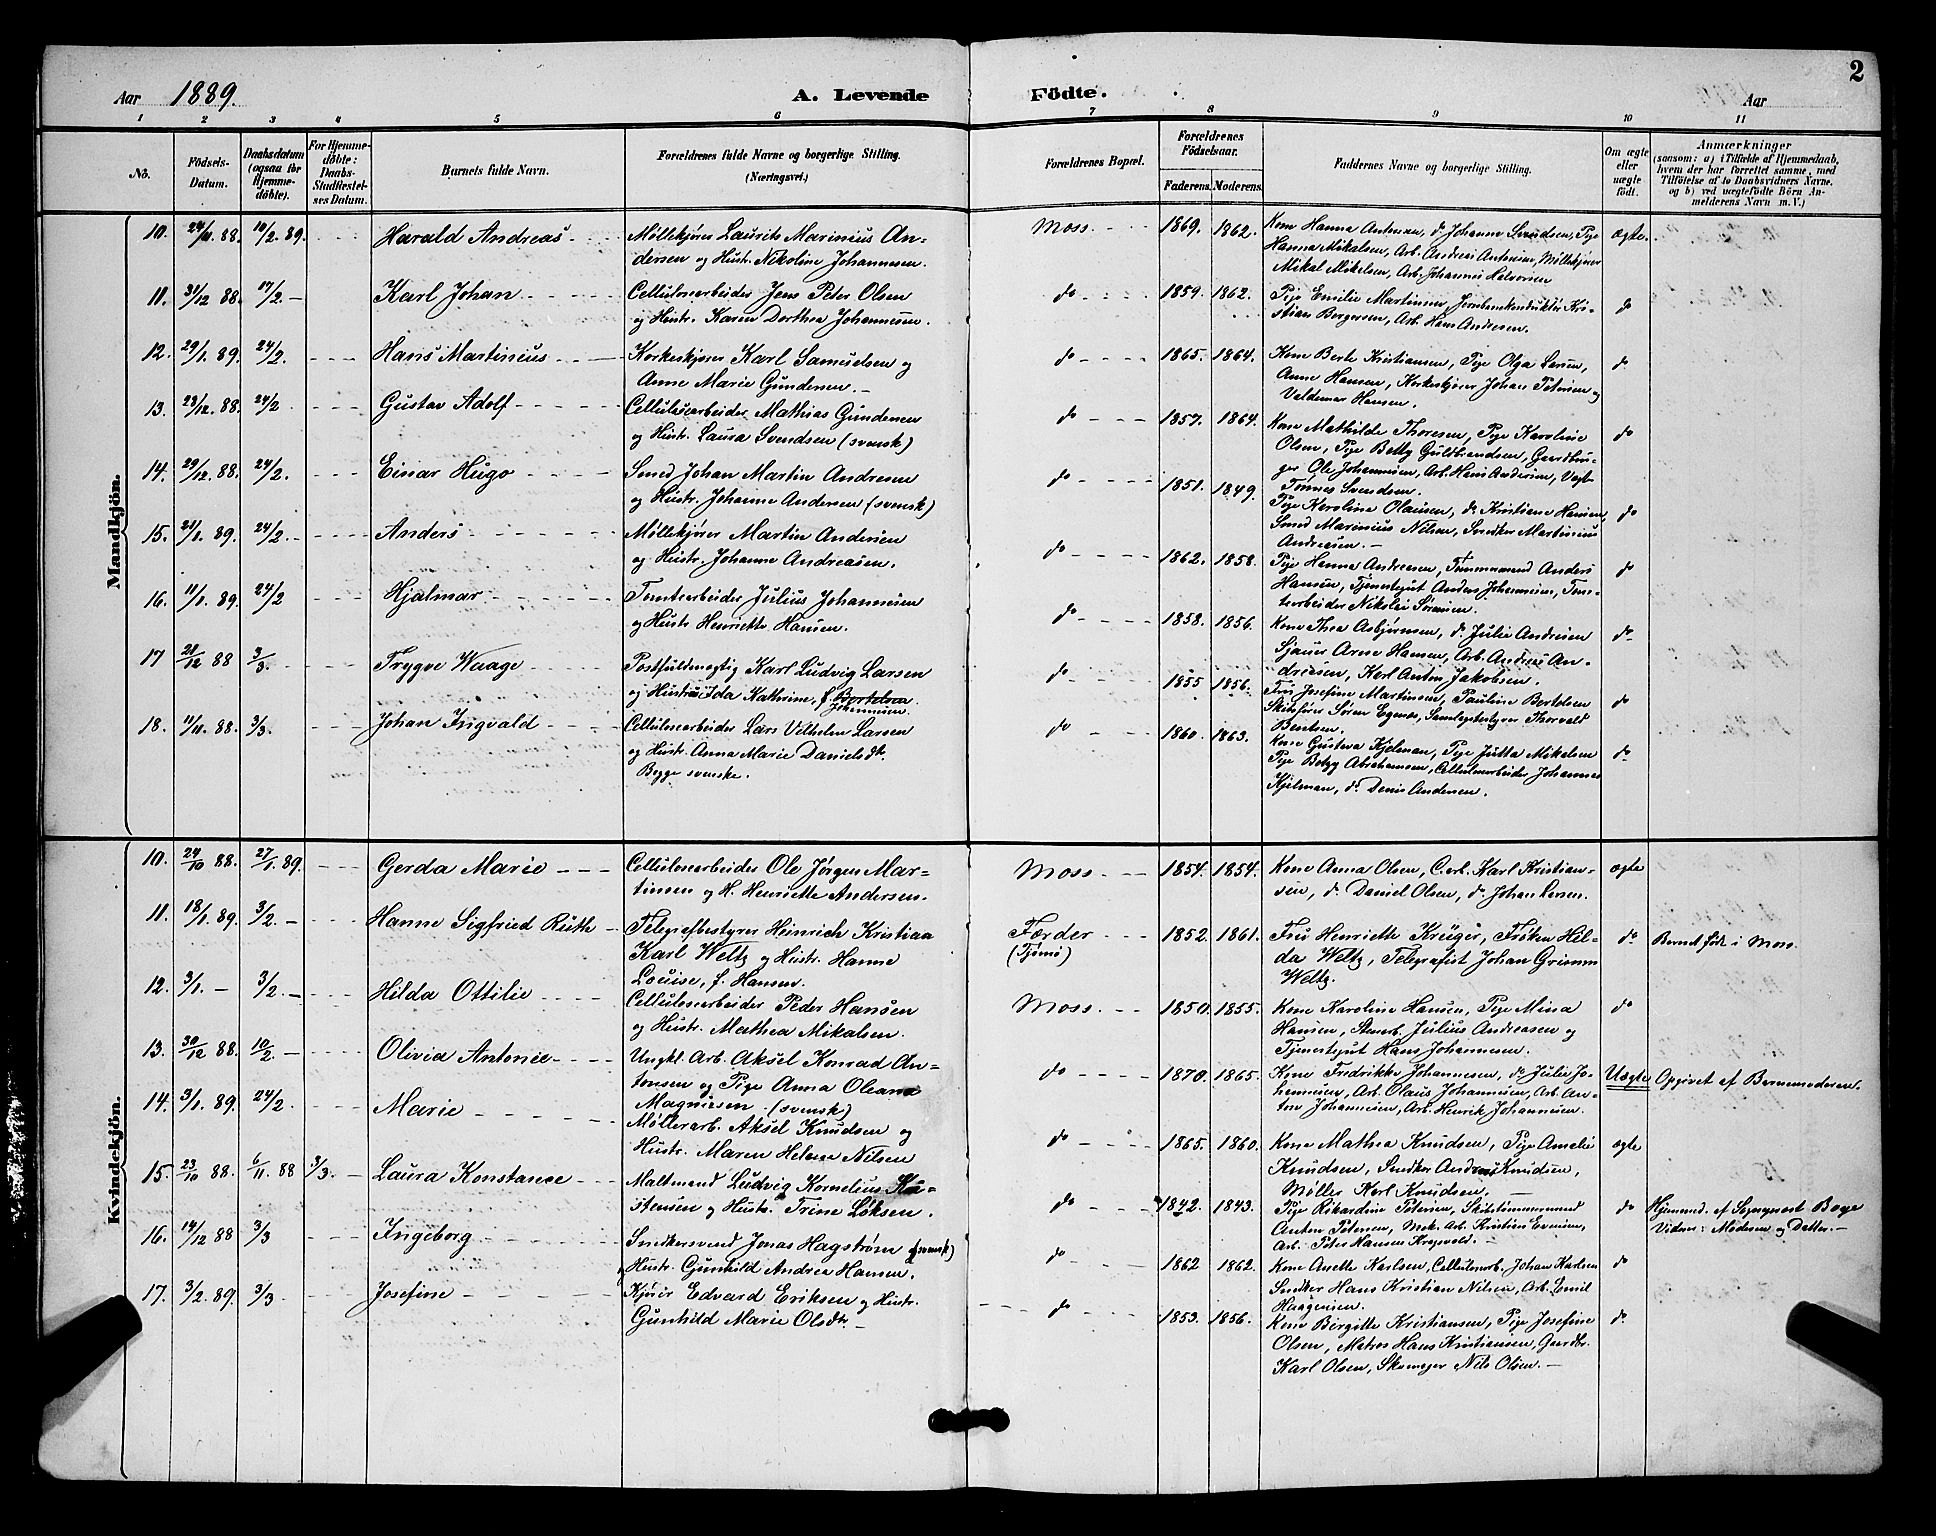 Aar 1889.
A. Levende Födte.
Aar
2
1 2 3 4 5 6 7 8 9 10 11
No.
Födsels-Datum.
Daabsdatum (ogsaa for Hjemmedöbte).
For Hjemmedöbte: Daabs-Stadfæstelses Datum.
Barnets fulde Navn.
Forældrenes fulde Navne og borgerlige Stilling. (Næringsvei.)
Forældrenes Bopæl.
Forældrenes Födselsaar.
Faderens. Moderens.
Faddernes Navne og borgerlige Stilling.
Om ægte eller uægte födt.
Anmærkninger
(saasom: a) i Tilfælde af Hjemmedaab, hvem der har forrettet samme, med Tilföielse af to Daabsvidners Navne, og b) ved uægtefödte Börn Anmelderens Navn m. V.)
Mandkjön.
10. 24/11 88. 10/2 89. Harald Andreas Møllekjører Laurits Marinius An-
dersen og Hustr. Nikoline Johannesen. Moss. 1869. 1862. Kone Hanna Antonsen, do Johanne Svendsen, Pige
Hanna Mikalsen, Arb. Andreas Antonsen, Møllekjører
Mikal Mikelsen, Arb. Johannes Halvorsen ægte.
11. 31/12 88. 17/2. Karl Johan Cellulosearbeider Jens Peter Olsen
og Hustr. Karen Dorthea Johannesen. do 1859. 1862. Pige Emilie Martinsen, Jernbanekonduktør Kri-
stian Borgersen, Arb. Hans Andresen. do
12. 29/1. 89. 24/2. Hans Martinius Korkeskjører Karl Samuelsen og
Anne Marie Gundersen. do 1865. 1864. Kone Berte Kristiansen, Pige Olga Larsen,
Anne Hansen, Korkeskjører Johan Petersen og
Valdemar Hansen. do
13. 23/12. 88. 24/2. Gustav Adolf Cellulosearbeider Mathias Gundersen
og Hustr. Laura Svendsen (svensk) do 1857. 1864. Kone Mathilde Thoresen, Pige Karoline
Olsen, Pige Betty Guldbrandsen, Gaardbru-
ger Ole Johannesen, Arb. Hans Andersen,
Tønnes Svendsen. do
14. 29/12. 88. 24/2. Einar Hugo Smed Johan Martin Andresen
og Hustr. Johanne Andersen (svensk) do 1851. 1849. Pige Karoline Olausen, do Kristiane Hansen,
Smed Marinius Nilsen, Snedker Martinius
Andreasen. do
15. 21/1. 89. 24/2. Anders Møllekjører Martin Andersen
og Hustr. Johanne Andreasen. do 1862. 1858. Pige Hanna Andresen, Tømmermand Anders
Hansen, Tjenestegut Anders Johannesen, Tom-
tearbeider Nikolai Sørensen. do
16. 11/1. 89. 24/2 Hjalmar Tomtearbeider Julius Johannesen
og Hustr Henriette Hansen. do 1858. 1856. Kone Thea Asbjørnsen, do. Julie Andresen
Sjauer Arne Hansen, Arb. Andreas An-
dreasen, Karl Anton Jakobsen. do
17 21/12 88 3/3. Trygve Waage Postfuldmegtig Karl Ludvig Larsen
og Hustru Ida Kathrine, f. Bertelsen
Johannesen. do 1855 1856. Fru Josefine Martinsen, Pauline Bertelsen
Skibsfører Søren Egenæs, Samlagsbestyrer Thorvald
Bentsen. do
18. 11/11. 88. 3/3. Johan Ingvald Cellulosearbeider Lars Vilhelm Larsen
og Hustr. Anna Marie Danielsdtr.
Begge svenske. do 1860. 1863. Kone Gustava Kjelman, Pige Jutta Mikelsen
Pige Betzy Abrahamsen, Cellulosearbeider Johannes
Kjelman, do Denis Andersen. do
Kvindekjön.
10. 24/10 88. 27/1 89. Gerda Marie Cellulosearbeider Ole Jørgen Mar-
tinsen og H. Henriette Andersen. Moss. 1854. 1854. Kone Anna Olsen, C. arb. Karl Kristian-
sen, do Daniel Olsen, do Johan Larsen. ægte
11. 18/1. 89. 3/2. Hanne Sigfried Ruth Telegrafbestyrer Heinrich Kristian
Karl Weltz og Hustr. Hanne
Louise, f. Hansen. Færder
(Tjømø) 1852. 1861. Fru Henriette Krüger, Frøken Hil-
da Weltz, Telegrafist Johan Grimm
Weltz. do Barnet født i Moss.
12. 3/1. 3/2. Hilda Ottilie Cellulosearbeider Peder Hansen
og Hustr. Mathea Mikalsen. Moss. 1850. 1855. Kone Karoline Hansen, Pige Mina
Hansen, Stenarb. Julius Andreasen og
Tjenestegut Hans Johannesen. do
13. 30/12 88. 10/2. Olivia Antonie Ungkl. Arb. Aksel Konrad An-
tonsen og Pige Anna Oleana
Magnusen. (svensk) do 1870. 1865. Kone Fredrikke Johannesen, do Julie Jo-
hannesen, Arb. Olaus Johannesen, Arb. An-
ton Johannesen, Arb. Henrik Johannesen. Uægte Opgivet af Barnemoderen.
14. 3/1. 89. 24/2. Marie Møllerarb. Aksel Knudsen og
Hustr. Maren Helena Nilsen do 1865. 1860. Kone Mathea Knudsen, Pige Amelie
Knudsen, Snedker Andreas Knudsen,
Møller Karl Knudsen. ægte
15. 23/10 88. 6/11. 88 3/3. Laura Konstance Maltmand Ludvig Kornelius
stensen og Hustr. Trine Løksen. do 1842. 1843. Pige Rikardine Petersen, Skibstømmermand
Anton Petersen, Mek. Arb. Kristian Evensen,
Arb. Peter Hansen Krogvold. do Hjemmed. af Sogneprest Boye
Vidner: Moderen og Datter.
16. 14/12 88 3/3 Ingeborg Snedkersvend Jonas Hagstrøm (svensk)
og Hustr. Gunhild Andrea Hansen. do 1862 1862. Kone Anette Karlsen, Cellulosearb. Johan Karlsen
Snedker Hans Kristian Nilsen, Arb. Emil
Haagensen. do
17. 3/2. 89. 3/3. Josefine Kjører Edvard Eriksen og Hustr.
Gunhild Marie Olsdtr. do 1853. 1856. Kone Birgitte Kristiansen, Pige Josefine
Olsen, Matros Hans Kristiansen, Gaardbr.
Karl Olsen, Skomager Nils Olsen. do